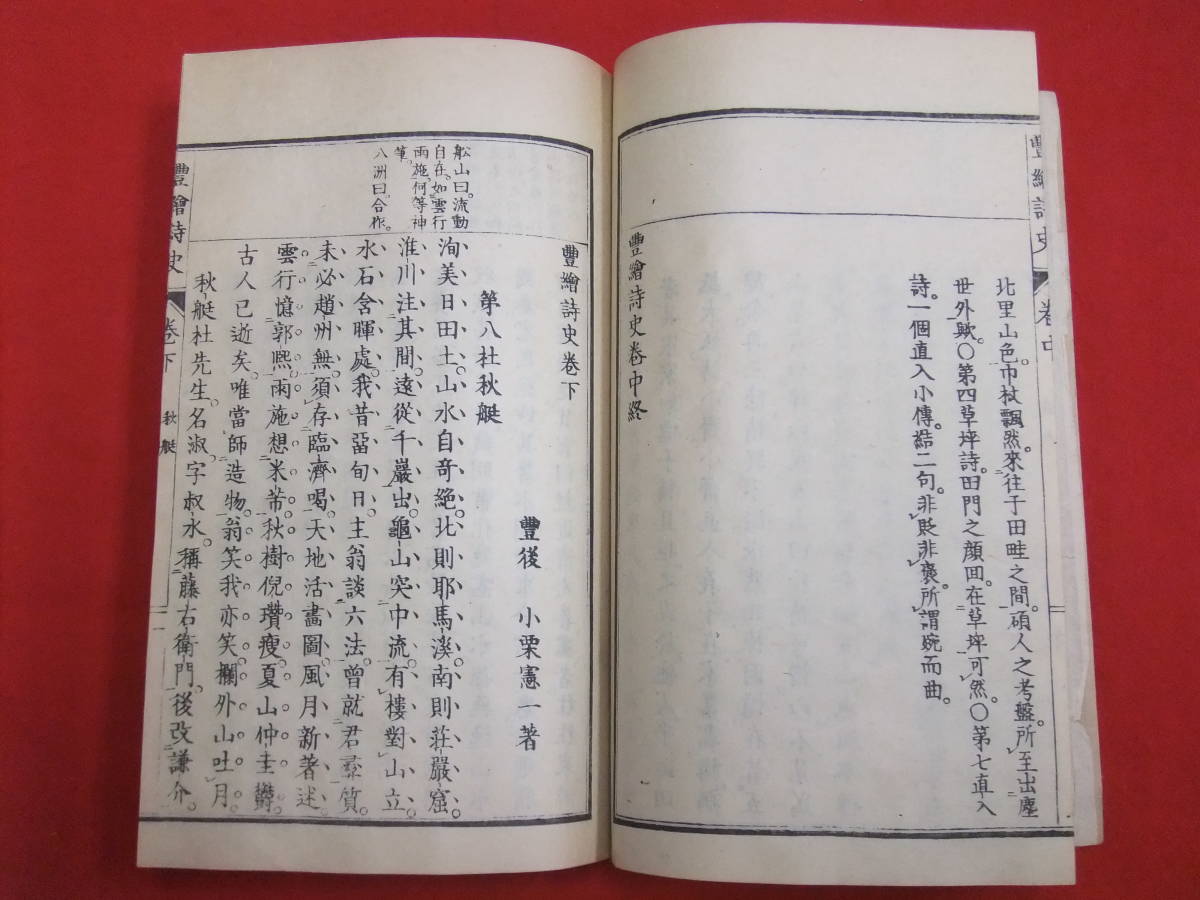 豐繪詩史
卷中
北里山色。巾杖飄然。來往于田畦之間。碩人之考盤。所至出塵
世外歟〇第四草坪詩。田門之顔回。在草坪可然。〇第七直入
詩。一個直入小傳。結二句。非貶非褒。所謂婉而曲。
豐繪詩史卷中終
舩山曰。流動
自在。如雲行
雨施。何等神
筆。
八洲曰。合作。
豐繪詩史卷下
豐後 小栗憲一著
第八杜秋艇
洵美日田土。山水自奇絶。北則耶馬溪。南則莊巖窟。
淮川注其間。遠從千巖出。龜山突中流。有樓對山立
水石含暉處。我昔畱旬日。主翁談六法。曾就君彜質。
未必趙州無。須存臨濟喝。天地活畫圖。風月新著述。
雲行憶郭熈。雨施想米芾。秋樹倪瓚瘦。夏山仲圭欝。
古人已逝矣。唯當師造物。翁笑我亦笑。欄外山吐月。
秋艇杜先生。名淑。字叔永。稱藤右衛門。後改謙介。
豐繪詩史
卷下
秋艇